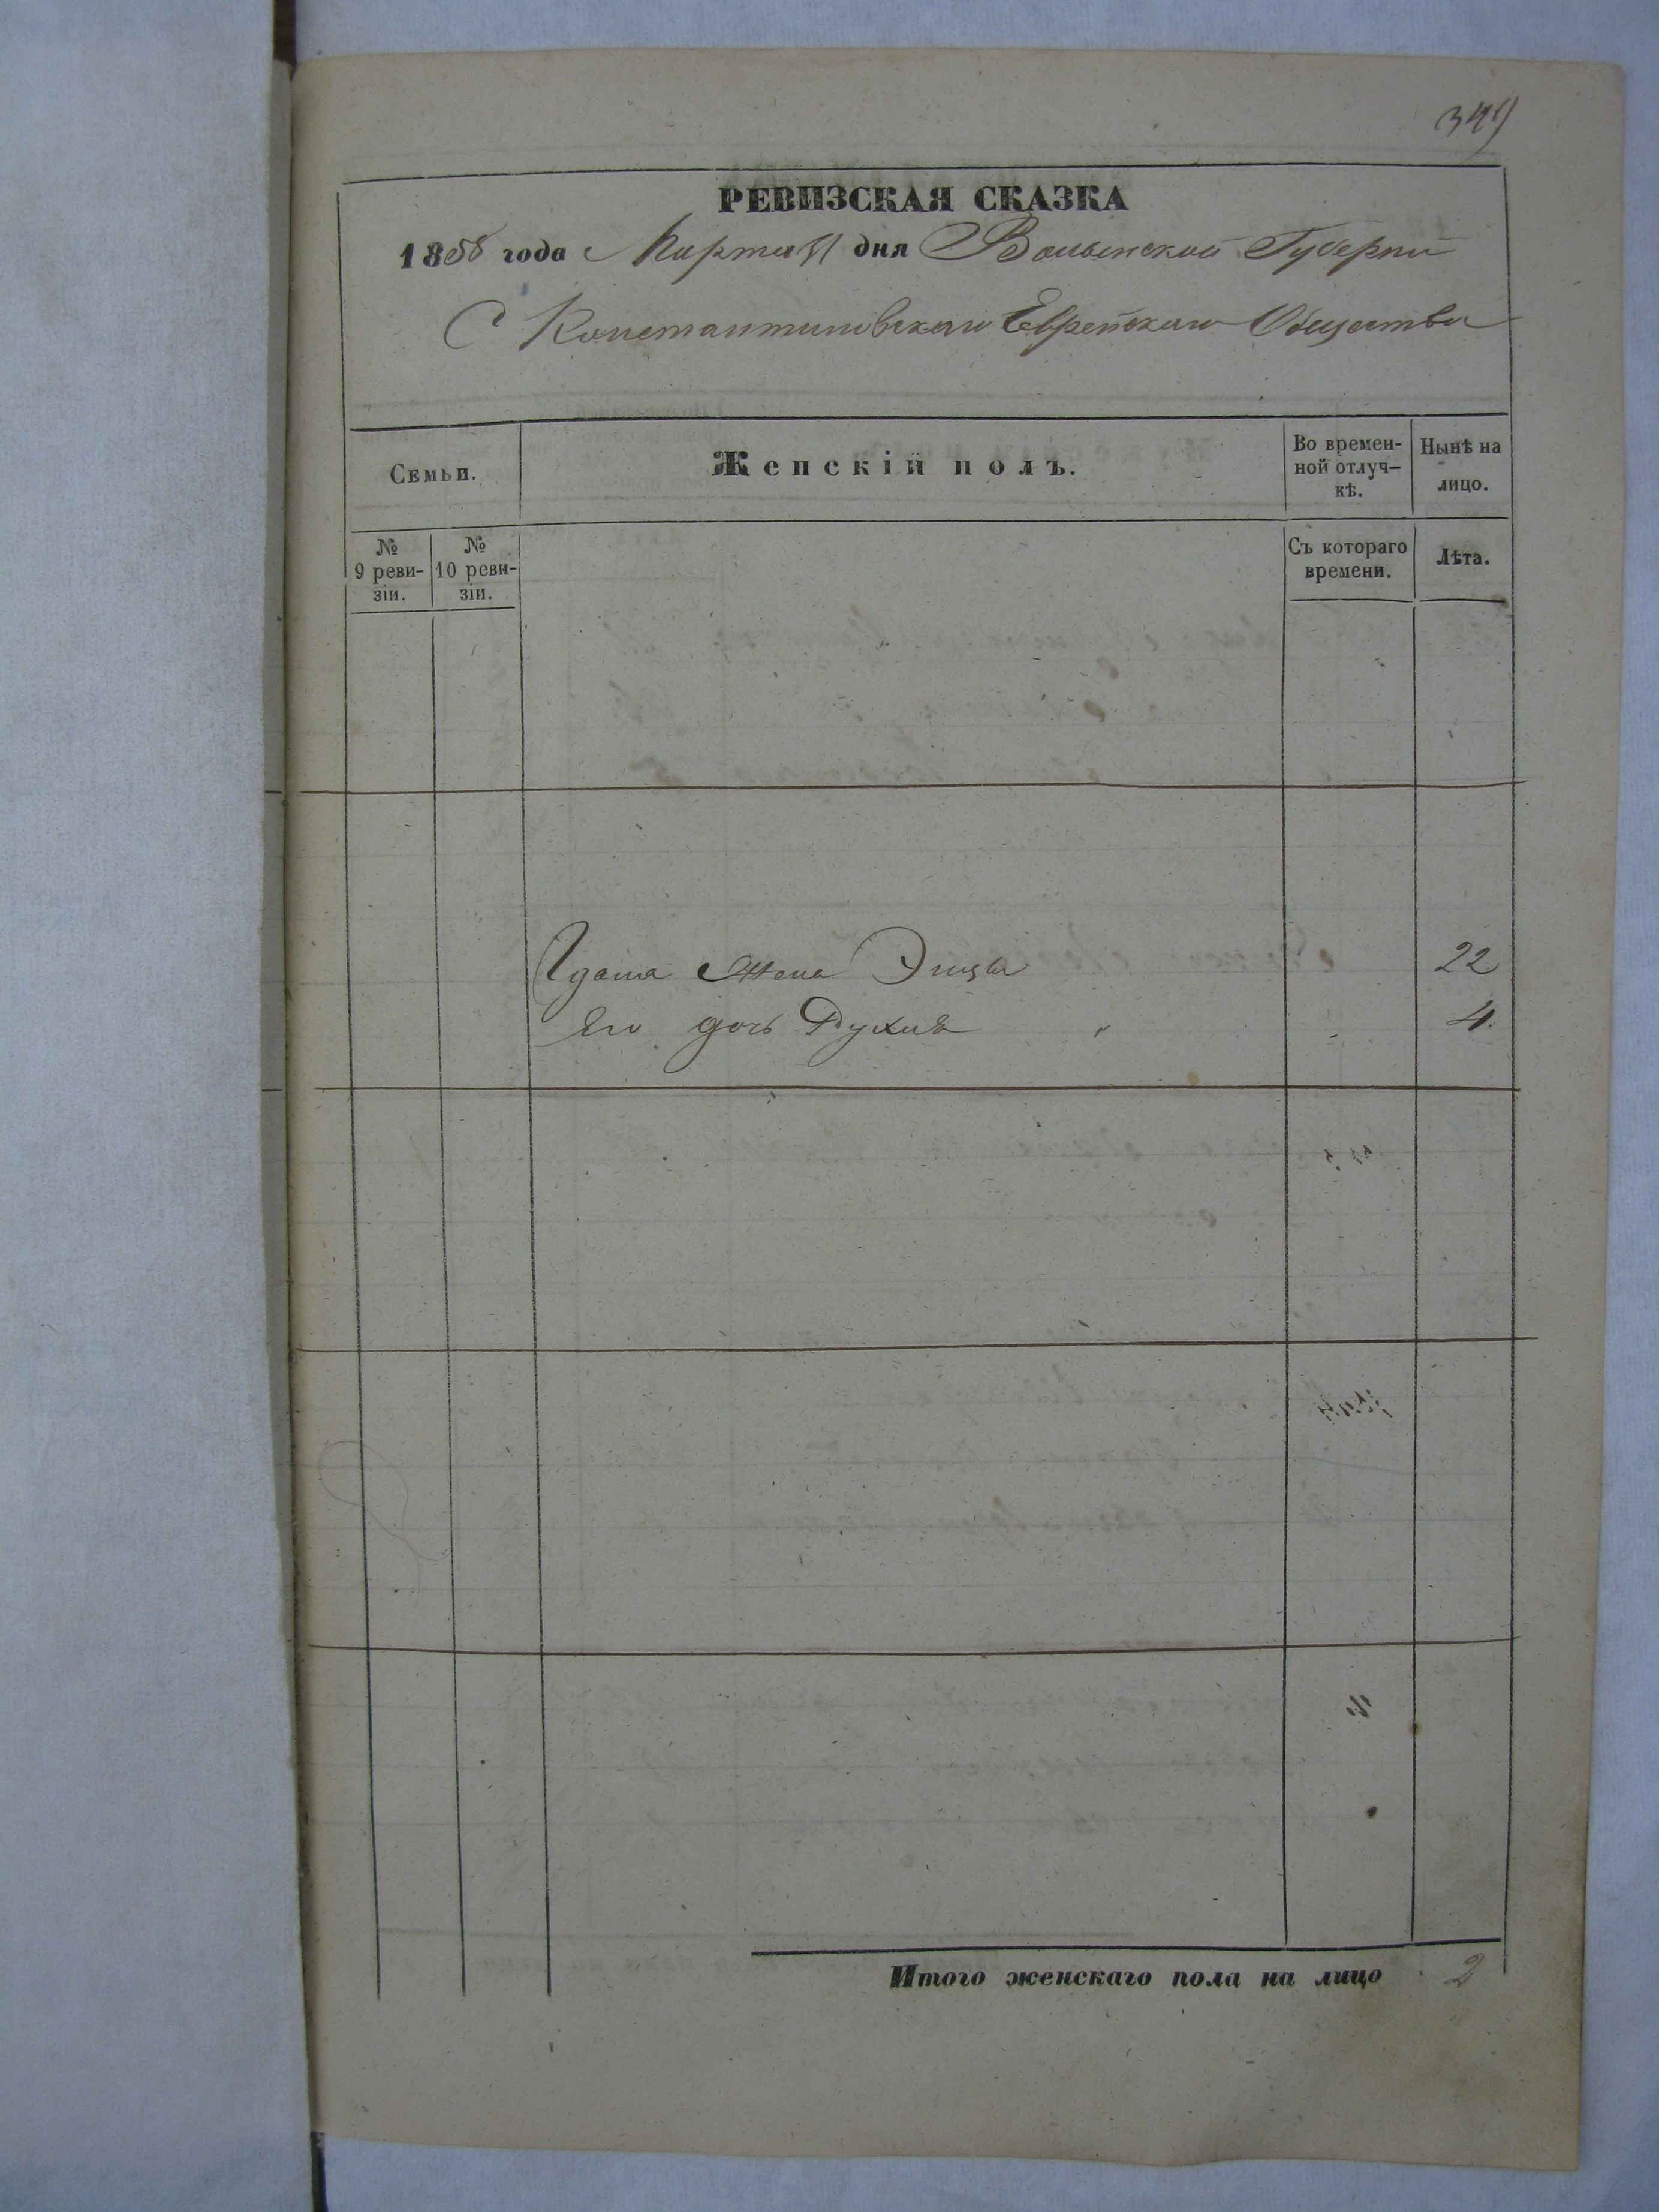 349
РЕВИЗСКАЯ СКАЗКА
1858 года Марта дня Волынской Губерни
С Константиновскаго Еврейскаго Общества
Семьи.
Женскій полъ.
Во времен-
ной отлуч-
кѣ.
Нынѣ на
лицо.
№
9 реви-
зіи.
№
10 реви-
зіи.
Съ котораго
времени.
Лѣта.
жена 22
Его дочь Рухля " - 4
Итого женскаго пола на лицо 2